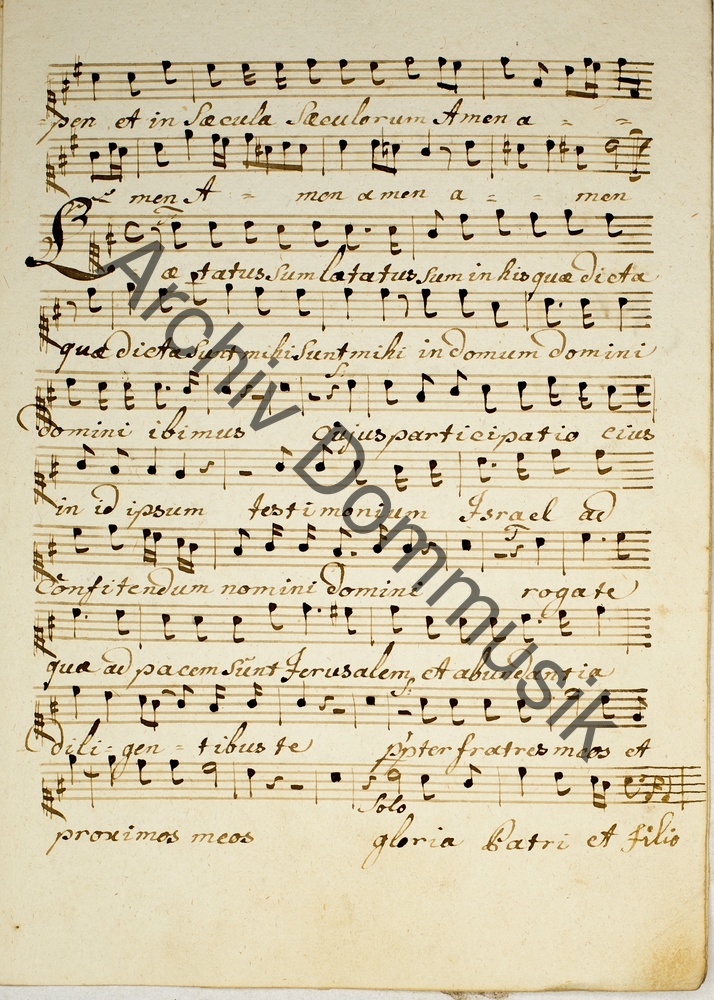 pen et in Sæcula Sæculorum Amen a = =
= men A = men amen a = = men
Lætatus sum lætatus sum in his quæ dicta
quæ dicta sunt mihi sunt mihi in domum domini
domini ibimus cujus participatio eius
in id ipsum testimonium Israel ad
Confitendum nomini domini rogate
quæ ad pacem sunt Jerusalem, et abundantia
dili-gen = tibus te ppter fratres meos et
Solo
proximos meos gloria Patri et Filio
Archiv Dommusik